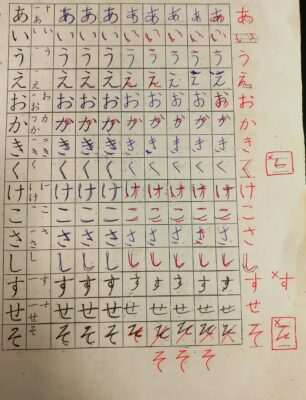 あ あ あ あ あ あ あ あ あ
い い い い い い い い い い
う う う う う う う う う
え え え え え え え え え
お お お お お お お お お お
か つ か か か か か か か か か か
き き き き き き き き き き
く く く く く く く く く
け け け け け け け け け け
こ こ こ こ こ こ こ こ こ こ
さ さ さ さ さ さ さ さ さ さ
し し し し し し し し し
す す す す す す す す す
せ せ せ せ せ せ せ せ せ
そ そ そ そ そ そ そ そ そ そ
そ そ そ